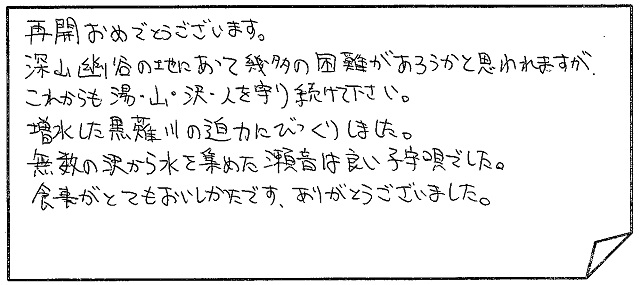 再開おめでとうございます。
深山幽谷の地にあって幾多の困難があろうかと思われますが、
これからも湯・山・沢・人を守り続けて下さい。
増水した黒薙川の迫力にびっくりしました。
無数の沢から水を集めた瀬音は良い子守唄でした。
食事がとてもおいしかたです、ありがとうございました。